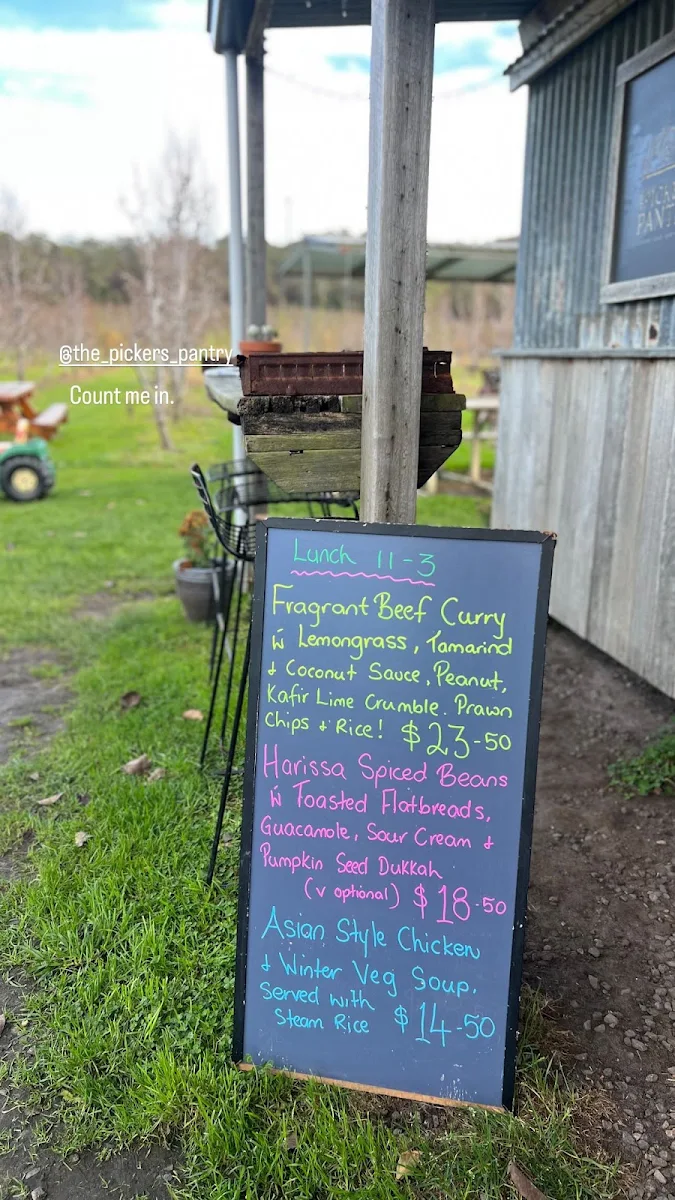 @the_pickers_pantry
Count me in.
Lunch 11-3
Fragrant Beef Curry
w̄ Lemongrass, Tamarind
+ Coconut Sauce, Peanut,
Kafir Lime Crumble. Prawn
Chips + Rice! $23-50
Harissa Spiced Beans
w̄ Toasted Flatbreads,
Guacamole, Sour Cream +
Pumpkin Seed Dukkah
(v optional) $18-50
Asian Style Chicken
+ Winter Veg Soup.
Served with
Steam Rice $14-50